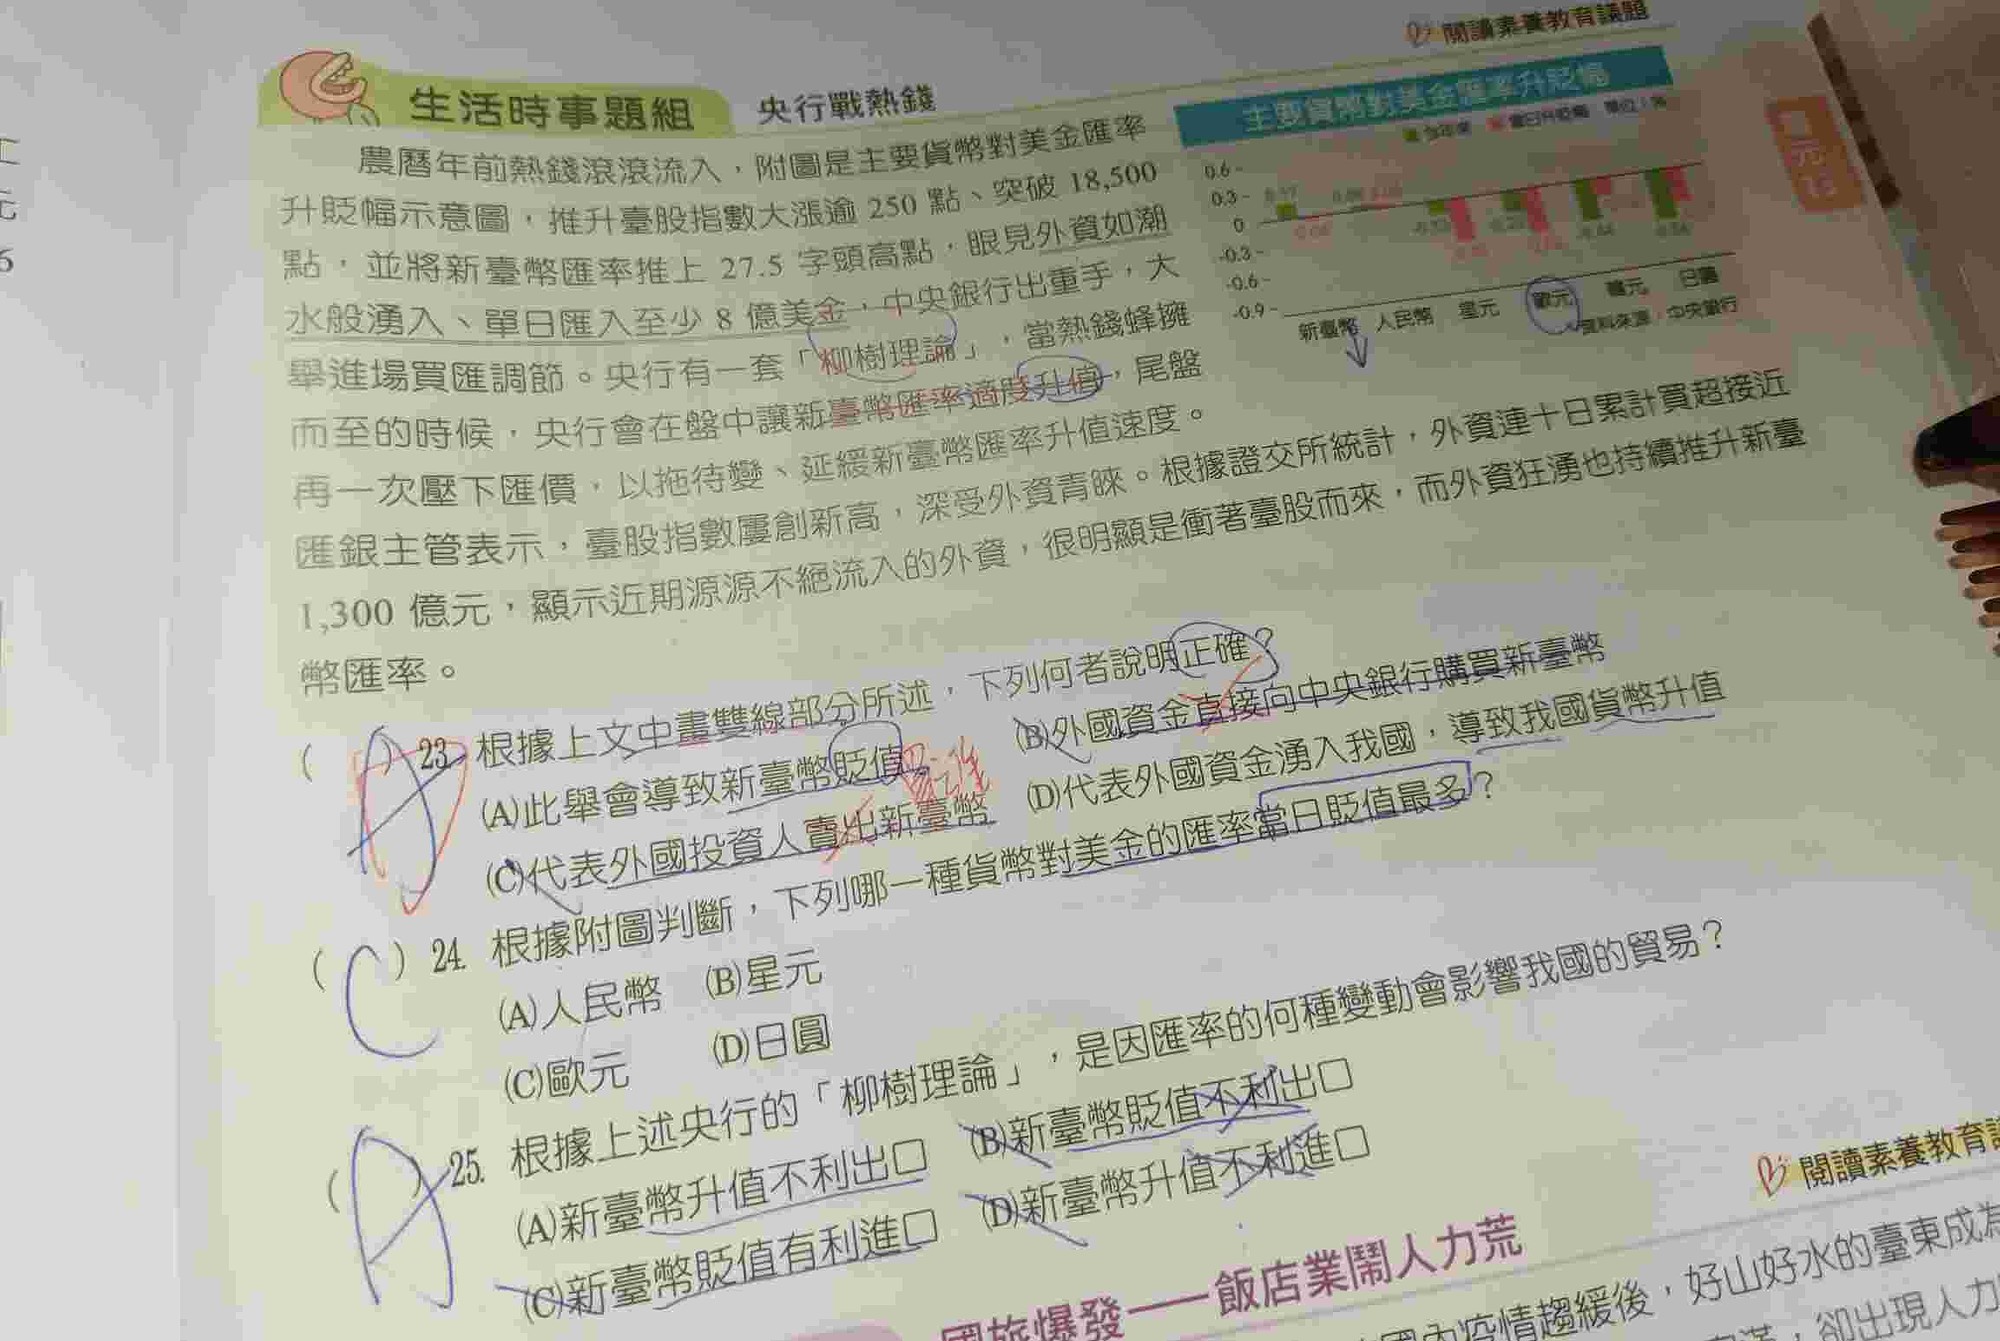 閱讀素養教育議題
生活時事題組 央行戰熱錢
主要貨幣對美金匯率升貶幅
農曆年前熱錢滾滾流入，附圖是主要貨幣對美金匯率
升貶幅示意圖，推升臺股指數大漲逾 250 點、突破 18,500
點，並將新臺幣匯率推上 27.5 字頭高點，眼見外資如潮
水般湧入、單日匯入至少 8 億美金，中央銀行出重手，大
舉進場買匯調節。央行有一套「柳樹理論」，當熱錢蜂擁
而至的時候，央行會在盤中讓新臺幣匯率適度升值，尾盤
再一次壓下匯價，以拖待變、延緩新臺幣匯率升值速度。
匯銀主管表示，臺股指數屢創新高，深受外資青睞。根據證交所統計，外資連十日累計買超接近
1,300 億元，顯示近期源源不絕流入的外資，很明顯是衝著臺股而來，而外資狂湧也持續推升新臺
幣匯率。
單位：%
0.6
0.3
0
-0.3
-0.6
-0.9
新臺幣 人民幣 星元 歐元 韓元 日圓
資料來源：中央銀行
( A ) 23. 根據上文中畫雙線部分所述，下列何者說明正確？
(A)此舉會導致新臺幣貶值 (B)外國資金直接向中央銀行購買新臺幣
(C)代表外國投資人賣出新臺幣 (D)代表外國資金湧入我國，導致我國貨幣升值
( C ) 24. 根據附圖判斷，下列哪一種貨幣對美金的匯率當日貶值最多？
(A)人民幣 (B)星元
(C)歐元 (D)日圓
( A ) 25. 根據上述央行的「柳樹理論」，是因匯率的何種變動會影響我國的貿易？
(A)新臺幣升值不利出口 (B)新臺幣貶值不利出口
(C)新臺幣貶值有利進口 (D)新臺幣升值不利進口
閱讀素養教育
國旅爆發——飯店業鬧人力荒
國內疫情趨緩後，好山好水的臺東成為
卻出現人力